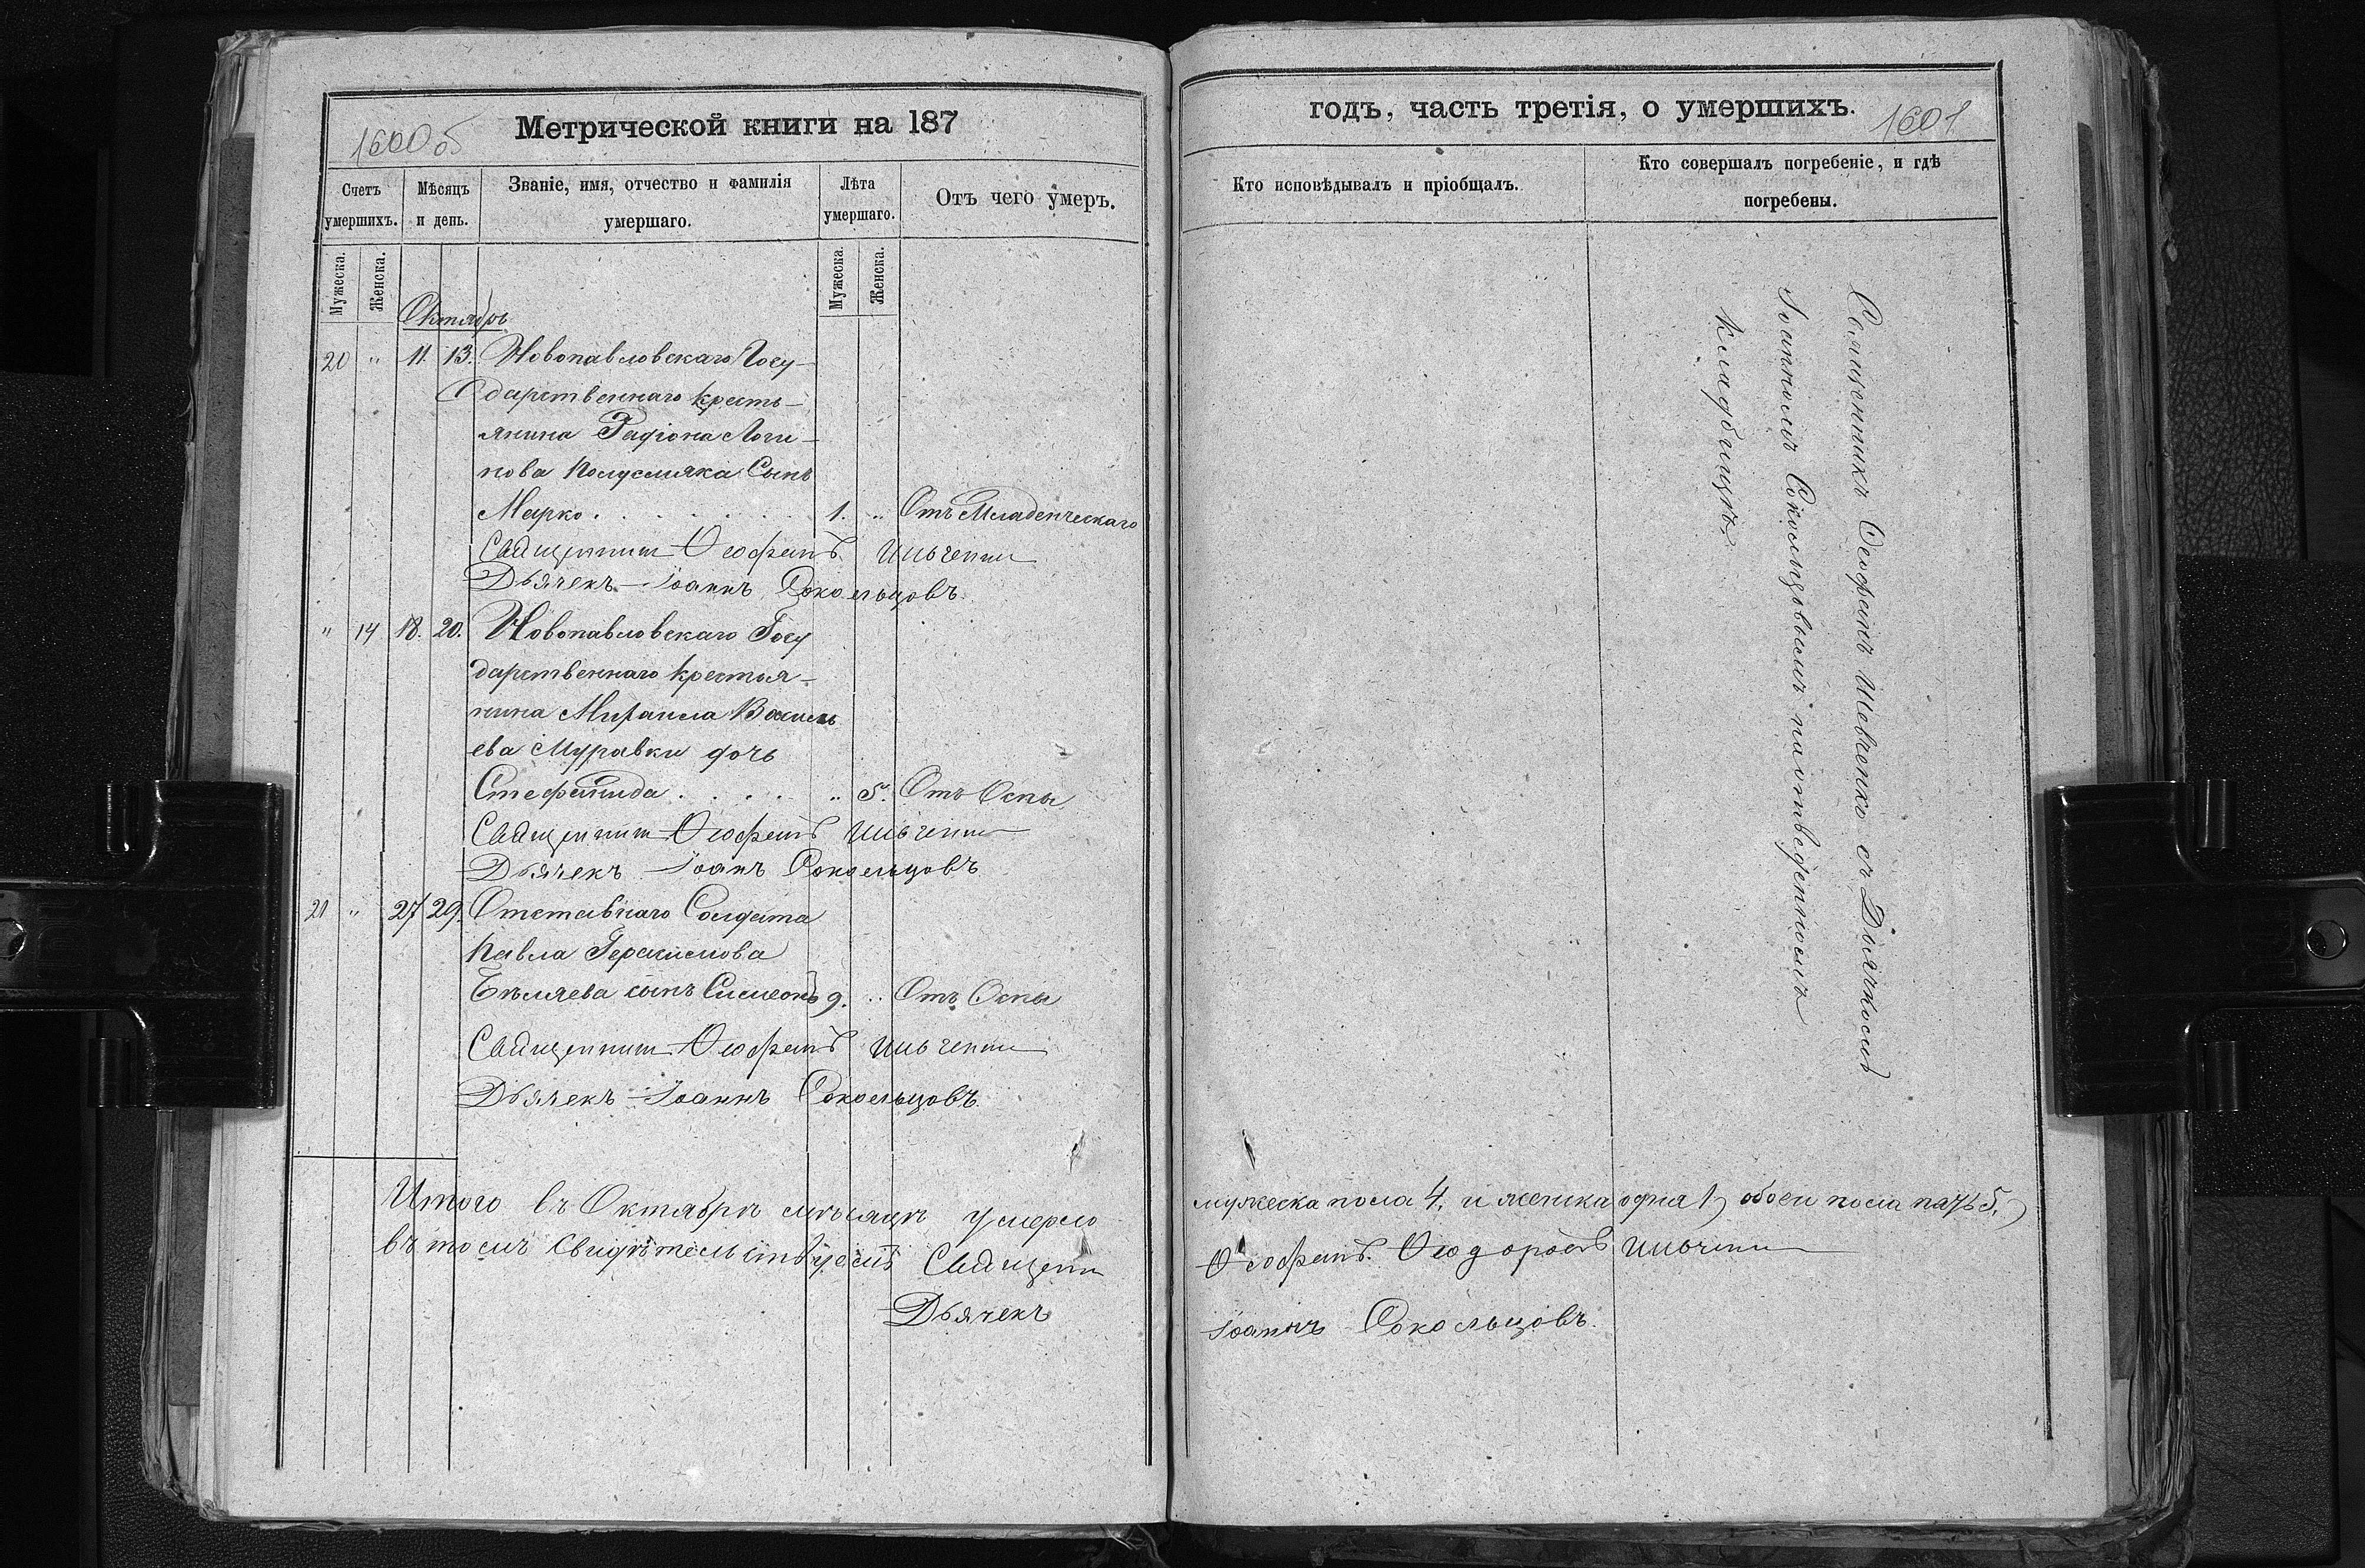 1600об
Метрической книги на 187
Счетъ умершихъ.
Мѣсяцъ и день.
Званіе, имя, отчество и фамилія умершаго.
Лѣта умершаго.
Отъ чего умеръ.
Мужеска.
Женска.
Мужеска
Женска.
Октябрь
20 " 11. 13. Новопавловскаго Госу-
дарственнаго кресть-
янина Радіона Логи-
нова Сынъ
Марко . . . . . . . 1. " Отъ Младенческаго
Священник Ѳеофанъ
Дьячекъ Іоаннъ Сокольцовъ.
" 14 18. 20. Новопавловскаго Госу
дарственнаго крестья-
нина Михаила Василь
ева Муравки дочь
Стефанида . . . . . " 5. Отъ Оспы
Священник Ѳеофанъ
Дьячекъ Іоанъ Сокольцовъ
21 " 27 29. Отставнаго Солдата
Павла Герасимова
Бѣляева сынъ Симеонъ 9. " Отъ Оспы
Священник Ѳеофанъ
Дьячекъ Іоаннъ Сокольцовъ.
Итого въ Октябрѣ мѣсяцѣ умерло
въ томъ свидѣтельствуемъ Священ
Дьячекъ
годъ, часть третія, о умершихъ.
1601
Кто исповѣдывалъ и пріобщалъ.
Кто совершалъ погребеніе, и гдѣ
погребены.
Священникъ Ѳеофанъ Шевченко съ Дьячкомъ
Іоанномъ Сокольцовымъ на отведенномъ
кладбищѣ
мужеска пола 4. и женска одна 1, обоего пола пять 5.
Ѳеофанъ. Ѳеодоровъ
Іоаннъ Сокольцовъ.